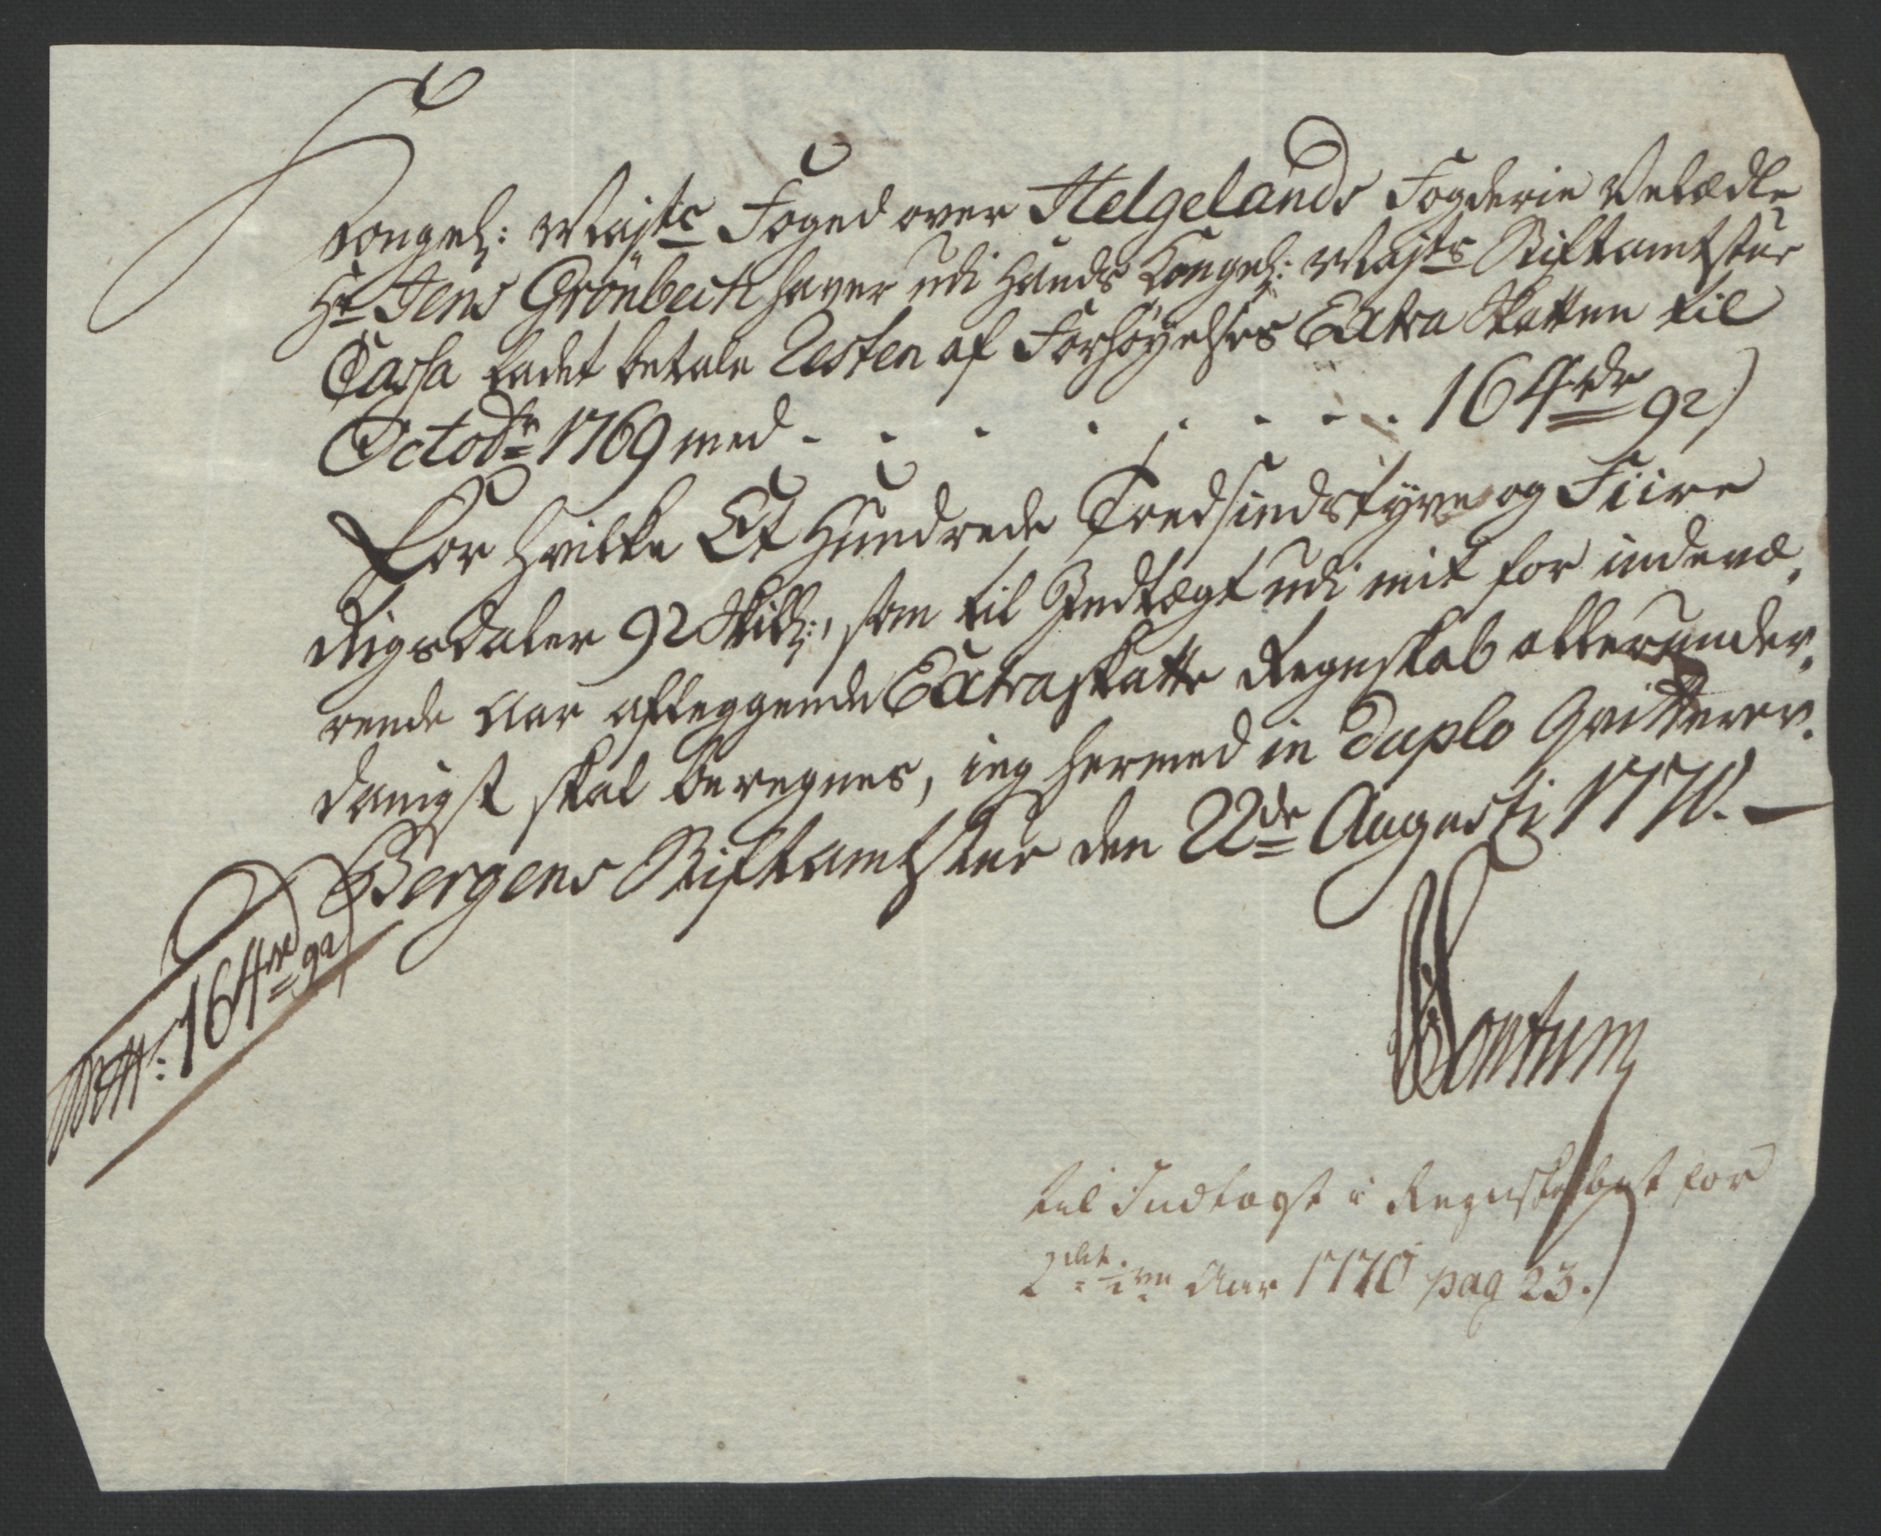 Kongel: Mayts Foged over Helgelands Fogderie Velædle
Hr Jens Grönbech haver udi Hands Kongel: Mayts Stiftamtstue
Cassa ladet betale Resten af Forhøyelses Extra Skatten til
Octobr 1769 med . . . . . . . . 164 rdr 92 s
For hvilke Et Hundrede Tredsindstyve og Fiire
Rigsdaler 92 Skill:, som til Indtægt udi mit for indevæ,
rende Aar aflæggende Extraskatte Regnskab allerunder,
danigst skal beregnes, ieg hermed in duplo Qvitterer.
Bergens Stiftamtstue den 22de Augusti 1770. —
164 rdr 92 s
til Indtægt i Regnskabet for
2det Aar 1770 pag 23.